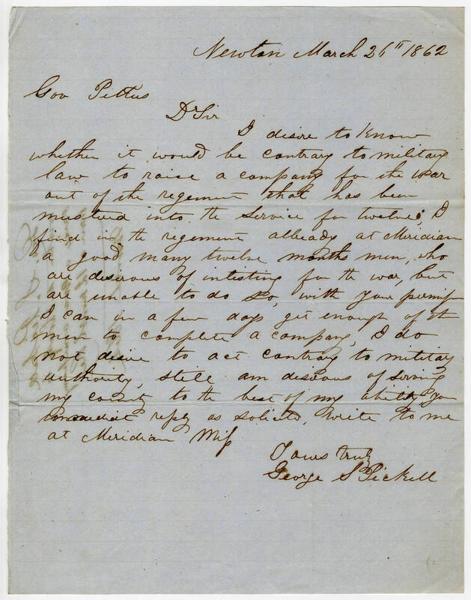 Newton March 26th 1862
Gov Pettus
Dr Sir
I desire to know
whether it would be contrary to military
law to raise a company for the war
out of the regement that has been
mustered into the service for twelve; I
find in the regement allready at Meridian
a good many twelve months men, who
are desirous of intisting for the war, but
are unable to do so, with your permis
I can in a few days get enough of the
men to complete a company, I do
not desire to act contrary to military
authority, still am desirous of serving
my country to the best of my ability, You
immediat reply is solicito, write to me
at Meridian Miss
Yours truly
George S Pickell